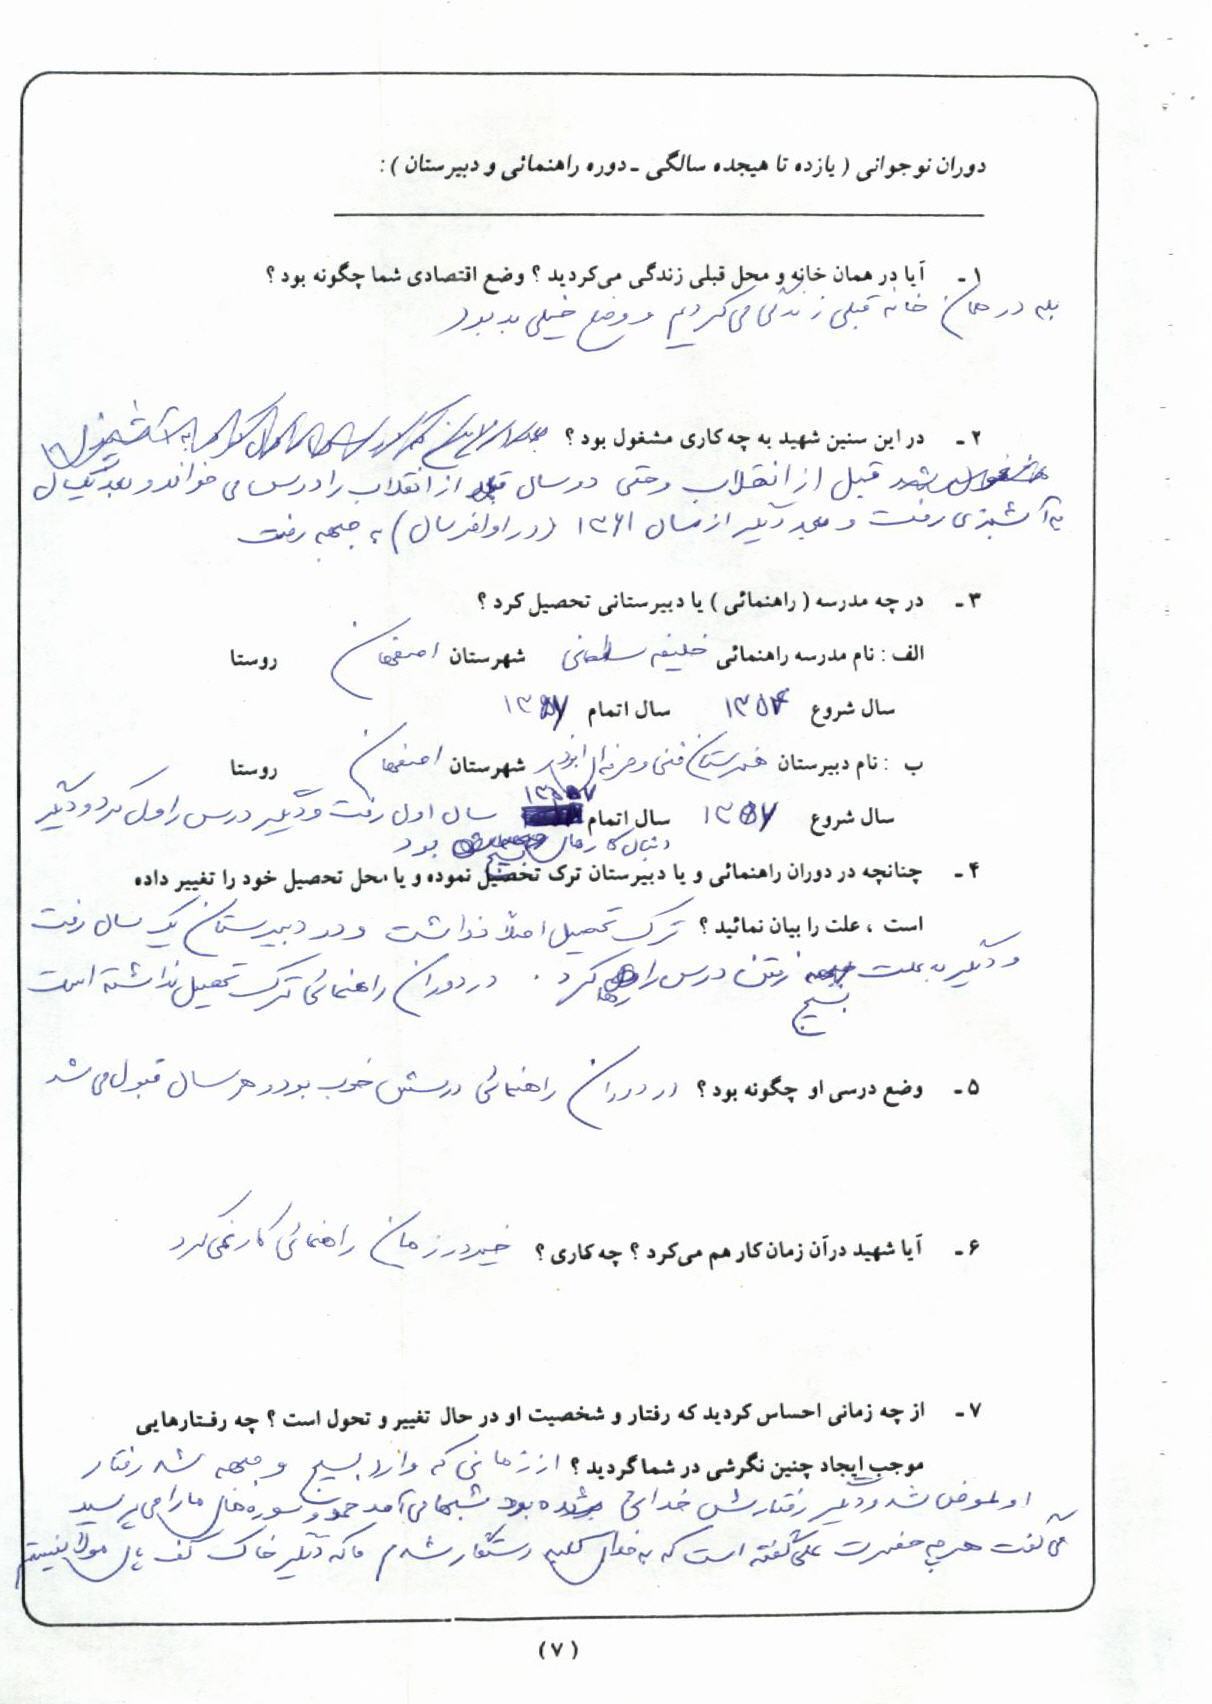 دوران نوجوانی ( یازده تا هیجده سالگی ـ دوره راهنمائی و دبیرستان ) :
۱ ـ آیا در همان خانه و محل قبلی زندگی می‌کردید ؟ وضع اقتصادی شما چگونه بود ؟
بله در همان خانه قبلی زندگی می کردیم و وضع خیلی بد بود
۲ ـ در این سنین شهید به چه کاری مشغول بود ؟
قبل از انقلاب و حتی دو سال از انقلاب را درس می خواند و بعد یکسال
به آشپزی رفت و بعد دیگر از سال ۱۳۶۱ (در اواخر سال) به جبهه رفت
۳ ـ در چه مدرسه ( راهنمائی ) یا دبیرستانی تحصیل کرد ؟
الف : نام مدرسه راهنمائی خلیفه سلطانی شهرستان اصفهان روستا
سال شروع ۱۳۵۴ سال اتمام ۱۳۵۷
ب : نام دبیرستان هنرستان فنی و حرفه ای ابوذر شهرستان اصفهان روستا
سال شروع ۱۳۵۷ سال اتمام ۱۳۵۷ سال اول رفت و دیگر درس را ول کرد و دیگر
دنبال کارهای بسیج بود
۴ ـ چنانچه در دوران راهنمائی و یا دبیرستان ترک تحصیل نموده و یا محل تحصیل خود را تغییر داده
است ، علت را بیان نمائید ؟ ترک تحصیل اصلاً نداشت و در دبیرستان یک سال رفت
و دیگر به علت بسیج رفتن درس را رها کرد . در دوران راهنمائی ترک تحصیل نداشته است
۵ ـ وضع درسی او چگونه بود ؟ در دوران راهنمائی درسش خوب بود و هر سال قبول می شد
۶ ـ آیا شهید در آن زمان کار هم می‌کرد ؟ چه کاری ؟ خیر در زمان راهنمائی کار نمی کرد
۷ ـ از چه زمانی احساس کردید که رفتار و شخصیت او در حال تغییر و تحول است ؟ چه رفتارهایی
موجب ایجاد چنین نگرشی در شما گردید ؟ از زمانی که وارد بسیج و جبهه شد رفتار
او عوض شد و دیگر رفتارش خدائی شده بود شبها می آمد حمد و سوره های ما را می پرسید
می گفت هر چه حضرت علی گفته است که به خدای کعبه رستگار شدم ما که دیگر خاک کف پای مولا نیستیم
(۷)